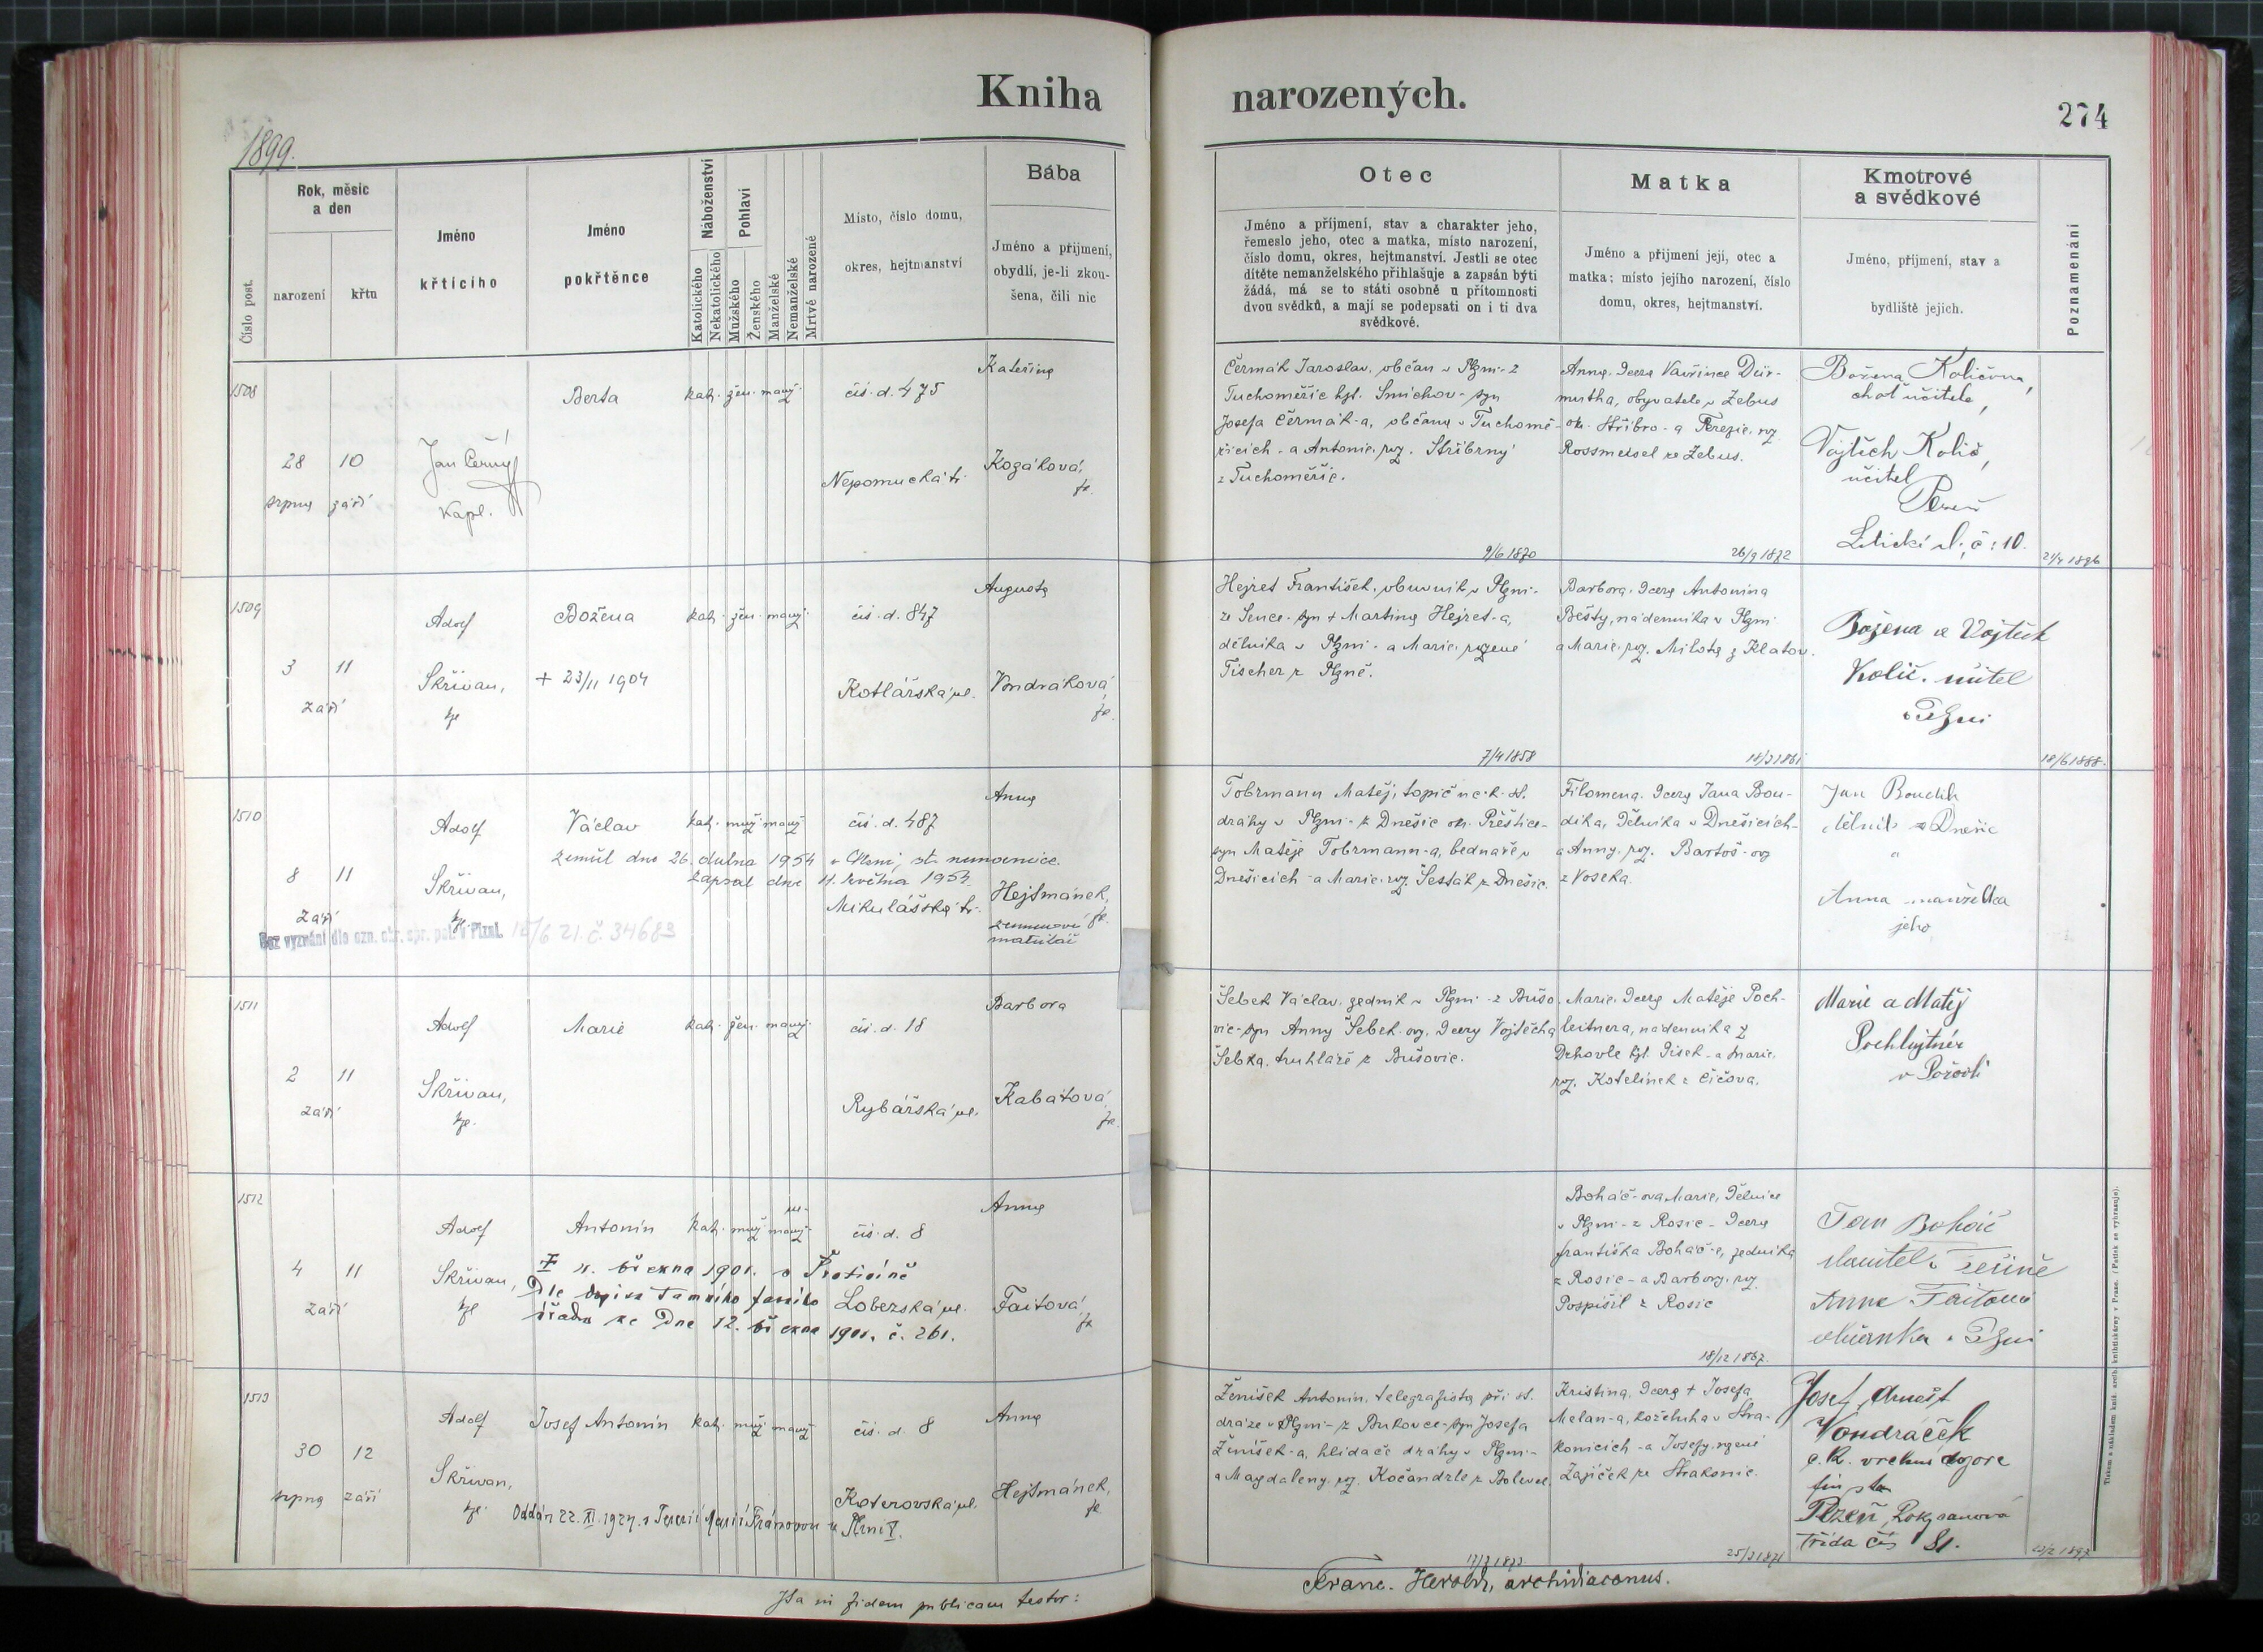 Kniha narozených.
274
1899.
Číslo post.
Rok, měsíc
a den
narození
křtu
Jméno
křtícího
Jméno
pokřtěnce
Náboženství
Katolického
Nekatolického
Pohlaví
Mužského
Ženského
Manželské
Nemanželské
Mrtvě narozené
Místo, číslo domu,
okres, hejtmanství
Bába
Jméno a příjmení,
obydlí, je-li zkou-
šena, čili nic
Otec
Jméno a příjmení, stav a charakter jeho,
řemeslo jeho, otec a matka, místo narození,
číslo domu, okres, hejtmanství. Jestli se otec
dítěte nemanželského přihlašuje a zapsán býti
žádá, má se to státi osobně u přítomnosti
dvou svědků, a mají se podepsati on i ti dva
svědkové.
Matka
Jméno a příjmení její, otec a
matka; místo jejího narození, číslo
domu, okres, hejtmanství.
Kmotrové
a svědkové
Jméno, příjmení, stav a
bydliště jejich.
Poznamenání
1508
28 10
srpna září
Jan Černý
kapl.
Berta
kat. žen. manž.
čís. d. 475
Nepomucká tř.
Kateřina
Kozáková,
zk.
Čermák Jaroslav, občan v Plzni - z
Tuchoměřic hjt. Smíchov - syn
Josefa Čermák-a, občana v Tuchomě-
řicích - a Antonie, roz. Stříbrný
z Tuchoměřic.
9/6 1870
Anna, dcera Vavřince Dür-
mutha, obyvatele v Zebus
ok. Stříbro - a Terezie, roz.
Rossmeisel ze Zebus.
26/9 1872
Božena Količova,
choť učitele,
Vojtěch Količ,
učitel
Plzeň
č: 10.
21/4 1896
1509
3 11
září
Adolf
Skřivan,
kpl
Božena
+ 23/11 1904
kat. žen. manž.
čís. d. 847
Kotlářská ul.
Augusta
Vondráková,
zk.
Hejret František, obuvník v Plzni -
ze Sence - syn + Martina Hejret-a,
dělníka v Plzni - a Marie, rozené
Tischer z Plzně.
7/4 1858
Barbora, dcera Antonína
Bešty, nádenníka v Plzni
a Marie, roz. Milota z Klatov.
18/3 1861
Božena a Vojtěch
Količ, učitel
v Plzni
18/6 1888.
1510
8 11
září
Adolf
Skřivan,
kpl
Václav
kat. muž. manž.
čís. d. 487
zemřel dne 26. dubna 1954 v Plzni, st. nemocnice.
zapsal dne 11. května 1954.
Mikulášská tř.
Anna
Hejtmánek,
zk.
Bez vyznání dle ozn. okr. spr. pol. v Plzni. 15/6 21. č. 34683
Tobrmann Matěj, topič u c. k. st.
dráhy v Plzni - z Dnešic ok. Přeštice -
syn Matěje Tobrmann-a, bednáře v
Dnešicích - a Marie, roz. Šesták z Dnešic.
Filomena, dcera Jana Bou-
dika, dělníka v Dnešicích -
a Anny, roz. Bartoš-ov
z Voseka.
Jan Boudik
dělník z Dnešic
a
Anna manželka
jeho
1511
2 11
září
Adolf
Skřivan,
kpl.
Marie
kat. žen. manž.
čís. d. 18
Rybářská ul.
Barbora
Kabátová,
zk.
Šebek Václav, zedník v Plzni - z Bušo-
vic - syn Anny Šebek-ov, dcery Vojtěcha
Šebka, truhláře z Bušovic.
Marie, dcera Matěje Poch-
leitnera, nádenníka z
Drhovle hjt. Písek - a Marie,
roz. Kotelínek z Čížova.
Marie a Matěj
Pochlajtnér
1512
4 11
září
Adolf
Skřivan,
kpl
Antonín
kat. muž. ne-
manž.
čís. d. 8
Lobezská ul.
Anna
Faitová,
zk
11. března 1901. v Protivíně
Dle dopisu tamního farního
úřadu ze dne 12. března 1901. č. 261.
Boháč-ova Marie, dělnice
v Plzni - z Rosic - dcera
Františka Boháč-e, zedníka
z Rosic - a Barbory, roz.
Pospíšil z Rosic
18/12 1867.
Jan Boháč
Anna Faitová
v Plzni
1513
30 12
srpna září
Adolf
Skřivan,
kpl.
Josef Antonín
kat. muž. manž
čís. d. 8
Koterovská ul.
Anna
Hejtmánek,
zk
Oddán 22. XI. 1927. s Terezií Marií v Plzni V.
Ženíšek Antonín, telegrafista při st.
dráze v Plzni - z Bukovce - syn Josefa
Ženíšek-a, hlídače dráhy v Plzni -
a Magdaleny, roz. Kočandrle z Bolevce.
17/7 1873
Kristina, dcera + Josefa
Melan-a, koželuha v Stra-
konicích - a Josefy, rozené
Zajíček ze Strakonic.
25/3 1871
Josef Arnošt
Vondráček
c. k. vrchní dozorce
fin. str.
Plzeň, Rokycanova
třída čís 81.
23/2 1897
Ita in fidem publicam testor:
Franc. Herold, archidiaconus.